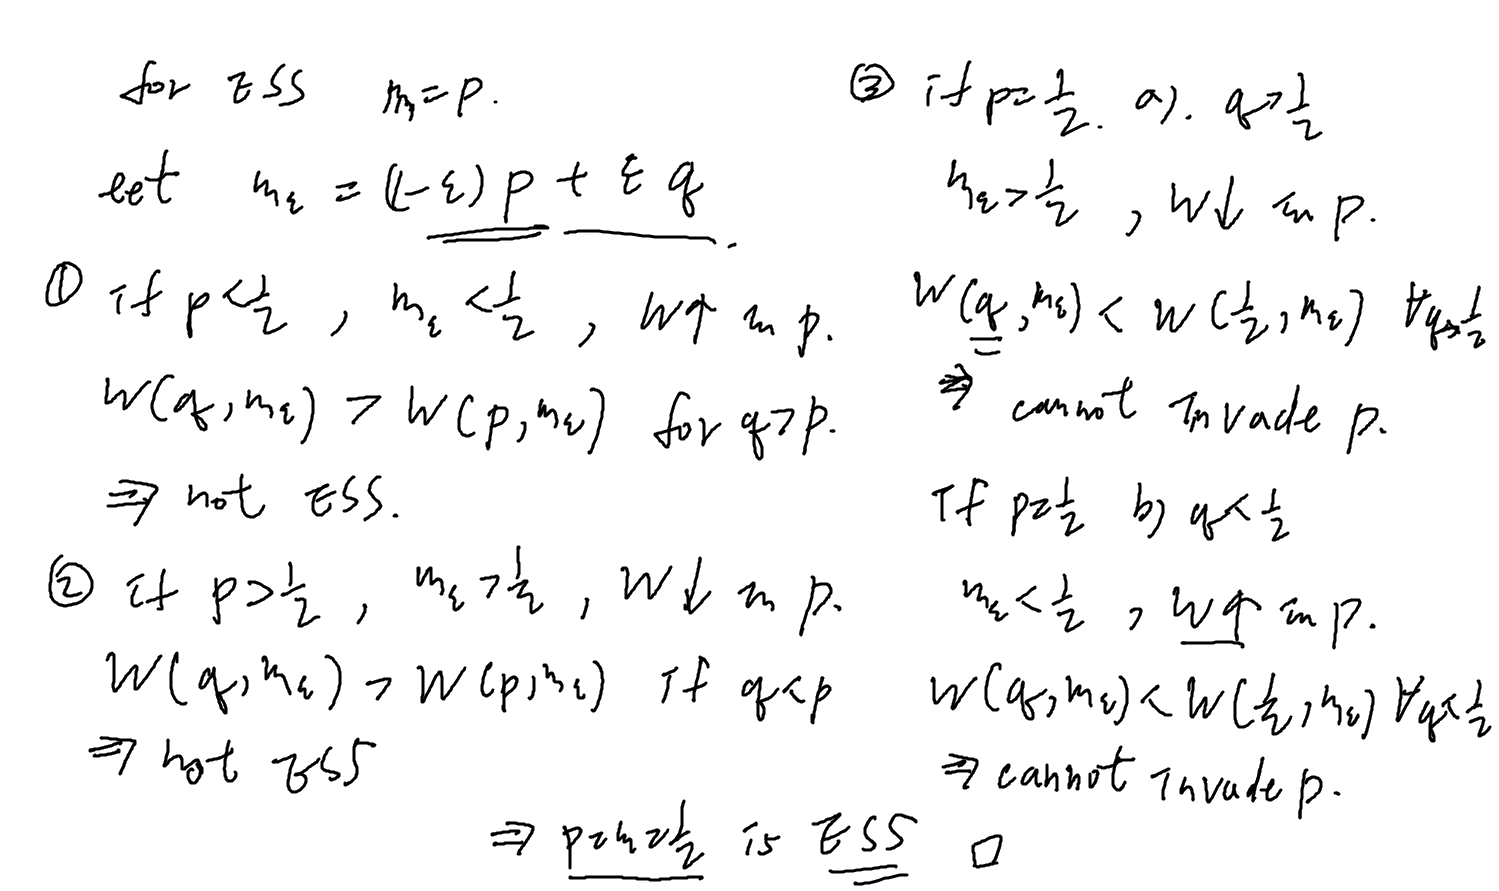 for ESS m=p.
let m_ε = (1-ε) p + ε q.
① if p<1/2, m_ε <1/2, W↑ in p.
W(q,m_ε) > W(p,m_ε) for q>p.
⇒ not ESS.
② if p>1/2, m_ε>1/2, W↓ in p.
W(q,m_ε) > W(p,m_ε) if q<p
⇒ not ESS
③ if p=1/2. a). q>1/2
m_ε>1/2, W↓ in p.
W(q,m_ε) < W(1/2,m_ε) ∀q>1/2
⇒ cannot invade p.
if p=1/2 b) q<1/2
m_ε<1/2, W↑ in p.
W(q,m_ε) < W(1/2,m_ε) ∀q<1/2
⇒ cannot invade p.
⇒ p=m=1/2 is ESS □